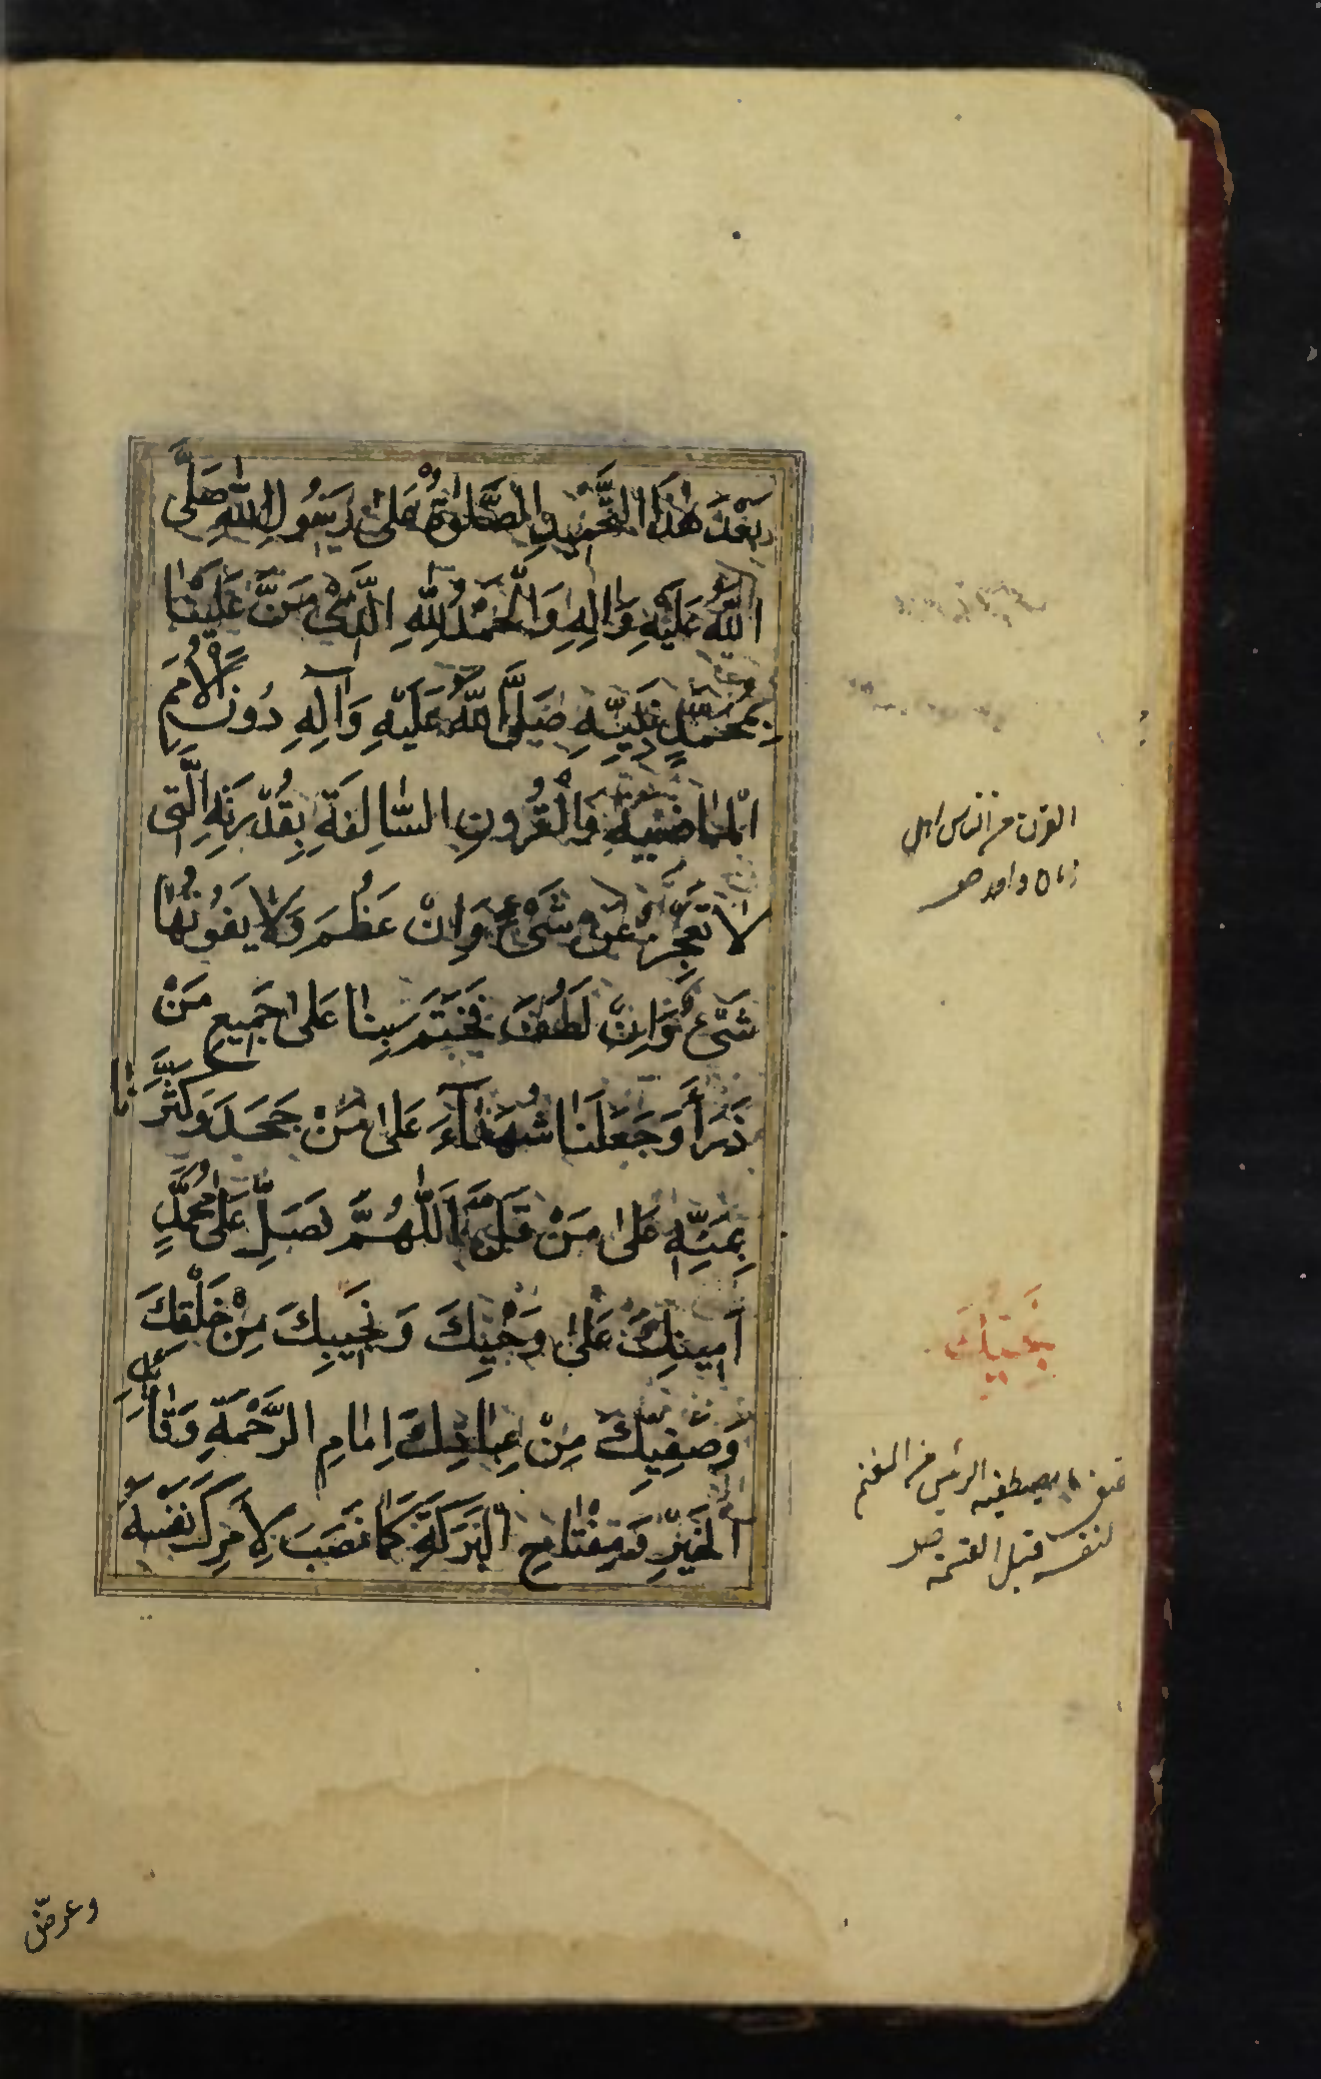 بَعْدَ هٰذَا التَّحْمِيدِ الصَّلٰوةُ عَلىٰ رَسُولِ اللّٰهِ صَلَّى
اللّٰهُ عَلَيْهِ وَاٰلِهِ وَالْحَمْدُ لِلّٰهِ الَّذِي مَنَّ عَلَيْنٰا
بِمُحَمَّدٍ نَبِيِّهِ صَلَّى اللّٰهُ عَلَيْهِ وَآلِهِ دُونَ الْاُمَمِ
الْمٰاضِيَةِ وَالْقُرُونِ السّٰالِفَةِ بِقُدْرَتِهِ الَّتِي
لا تَعْجِزُ عَنْ شَيْءٍ وَاِنْ عَظُمَ وَلا يَفُوتُهٰا
شَيْءٌ وَاِنْ لَطُفَ فَخَتَمَ بِنٰا عَلىٰ جَمِيعِ مَنْ
ذَرَأَ وَجَعَلَنٰا شُهَدٰآءَ عَلىٰ مَنْ جَحَدَ وَكَثَّرَنٰا
بِمَنِّهِ عَلىٰ مَنْ قَلَّ اَللّٰهُمَّ فَصَلِّ عَلىٰ مُحَمَّدٍ
اَمِينِكَ عَلىٰ وَحْيِكَ وَنَجِيبِكَ مِنْ خَلْقِكَ
وَصَفِيِّكَ مِنْ عِبٰادِكَ اِمٰامِ الرَّحْمَةِ وَقٰائِدِ
الْخَيْرِ وَمِفْتٰاحِ الْبَرَكَةِ كَمٰا نَصَبَ لِاَمْرِكَ نَفْسَهُ
القرن من الناس اهل
زمان واحد ص
نَجِيِّكَ
صفي ما يصطفيه الرئيس من المغنم
لنفسه قبل القسمة ص
وعرّض